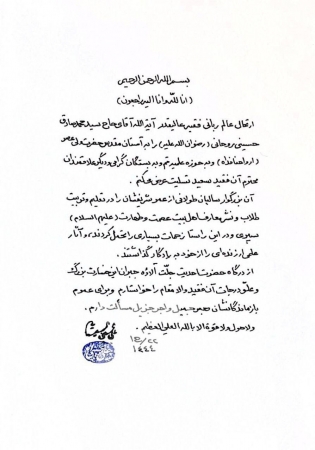 بسم الله الرحمن الرحیم
(انا لله وانا الیه راجعون)
ارتحال عالم ربانی فقیه عالیقدر آیة الله آقای حاج سید محمد صادق
حسینی روحانی (رضوان الله علیه) را به آستان مقدس حضرت ولی عصر
(ارواحنا فداه) وبه حوزه علمیه قم وبه بستگان گرامی ودیگر علاقمندان
محترم آن فقید سعید تسلیت عرض می‌کنم.
آن بزرگوار سالیان طولانی از عمر شریفشان را در تعلیم وتربیت
طلاب ونشر معارف اهل بیت عصمت وطهارت (علیهم السلام)
سپری و در این راستا زحمات بسیاری را تحمل کردند، و آثار
علمی ارزنده‌ای را از خود به یادگار گذاشتند.
از درگاه حضرت احدیت جلّت آلاؤه جبران این خسارت بزرگ
وعلوّ درجات آن فقید والا مقام را خواستارم وبرای عموم
بازماندگانشان صبر جمیل واجر جزیل مسألت دارم.
ولا حول ولا قوة الا بالله العلی العظیم.
۲۲/ع۱
۱۴۴۴